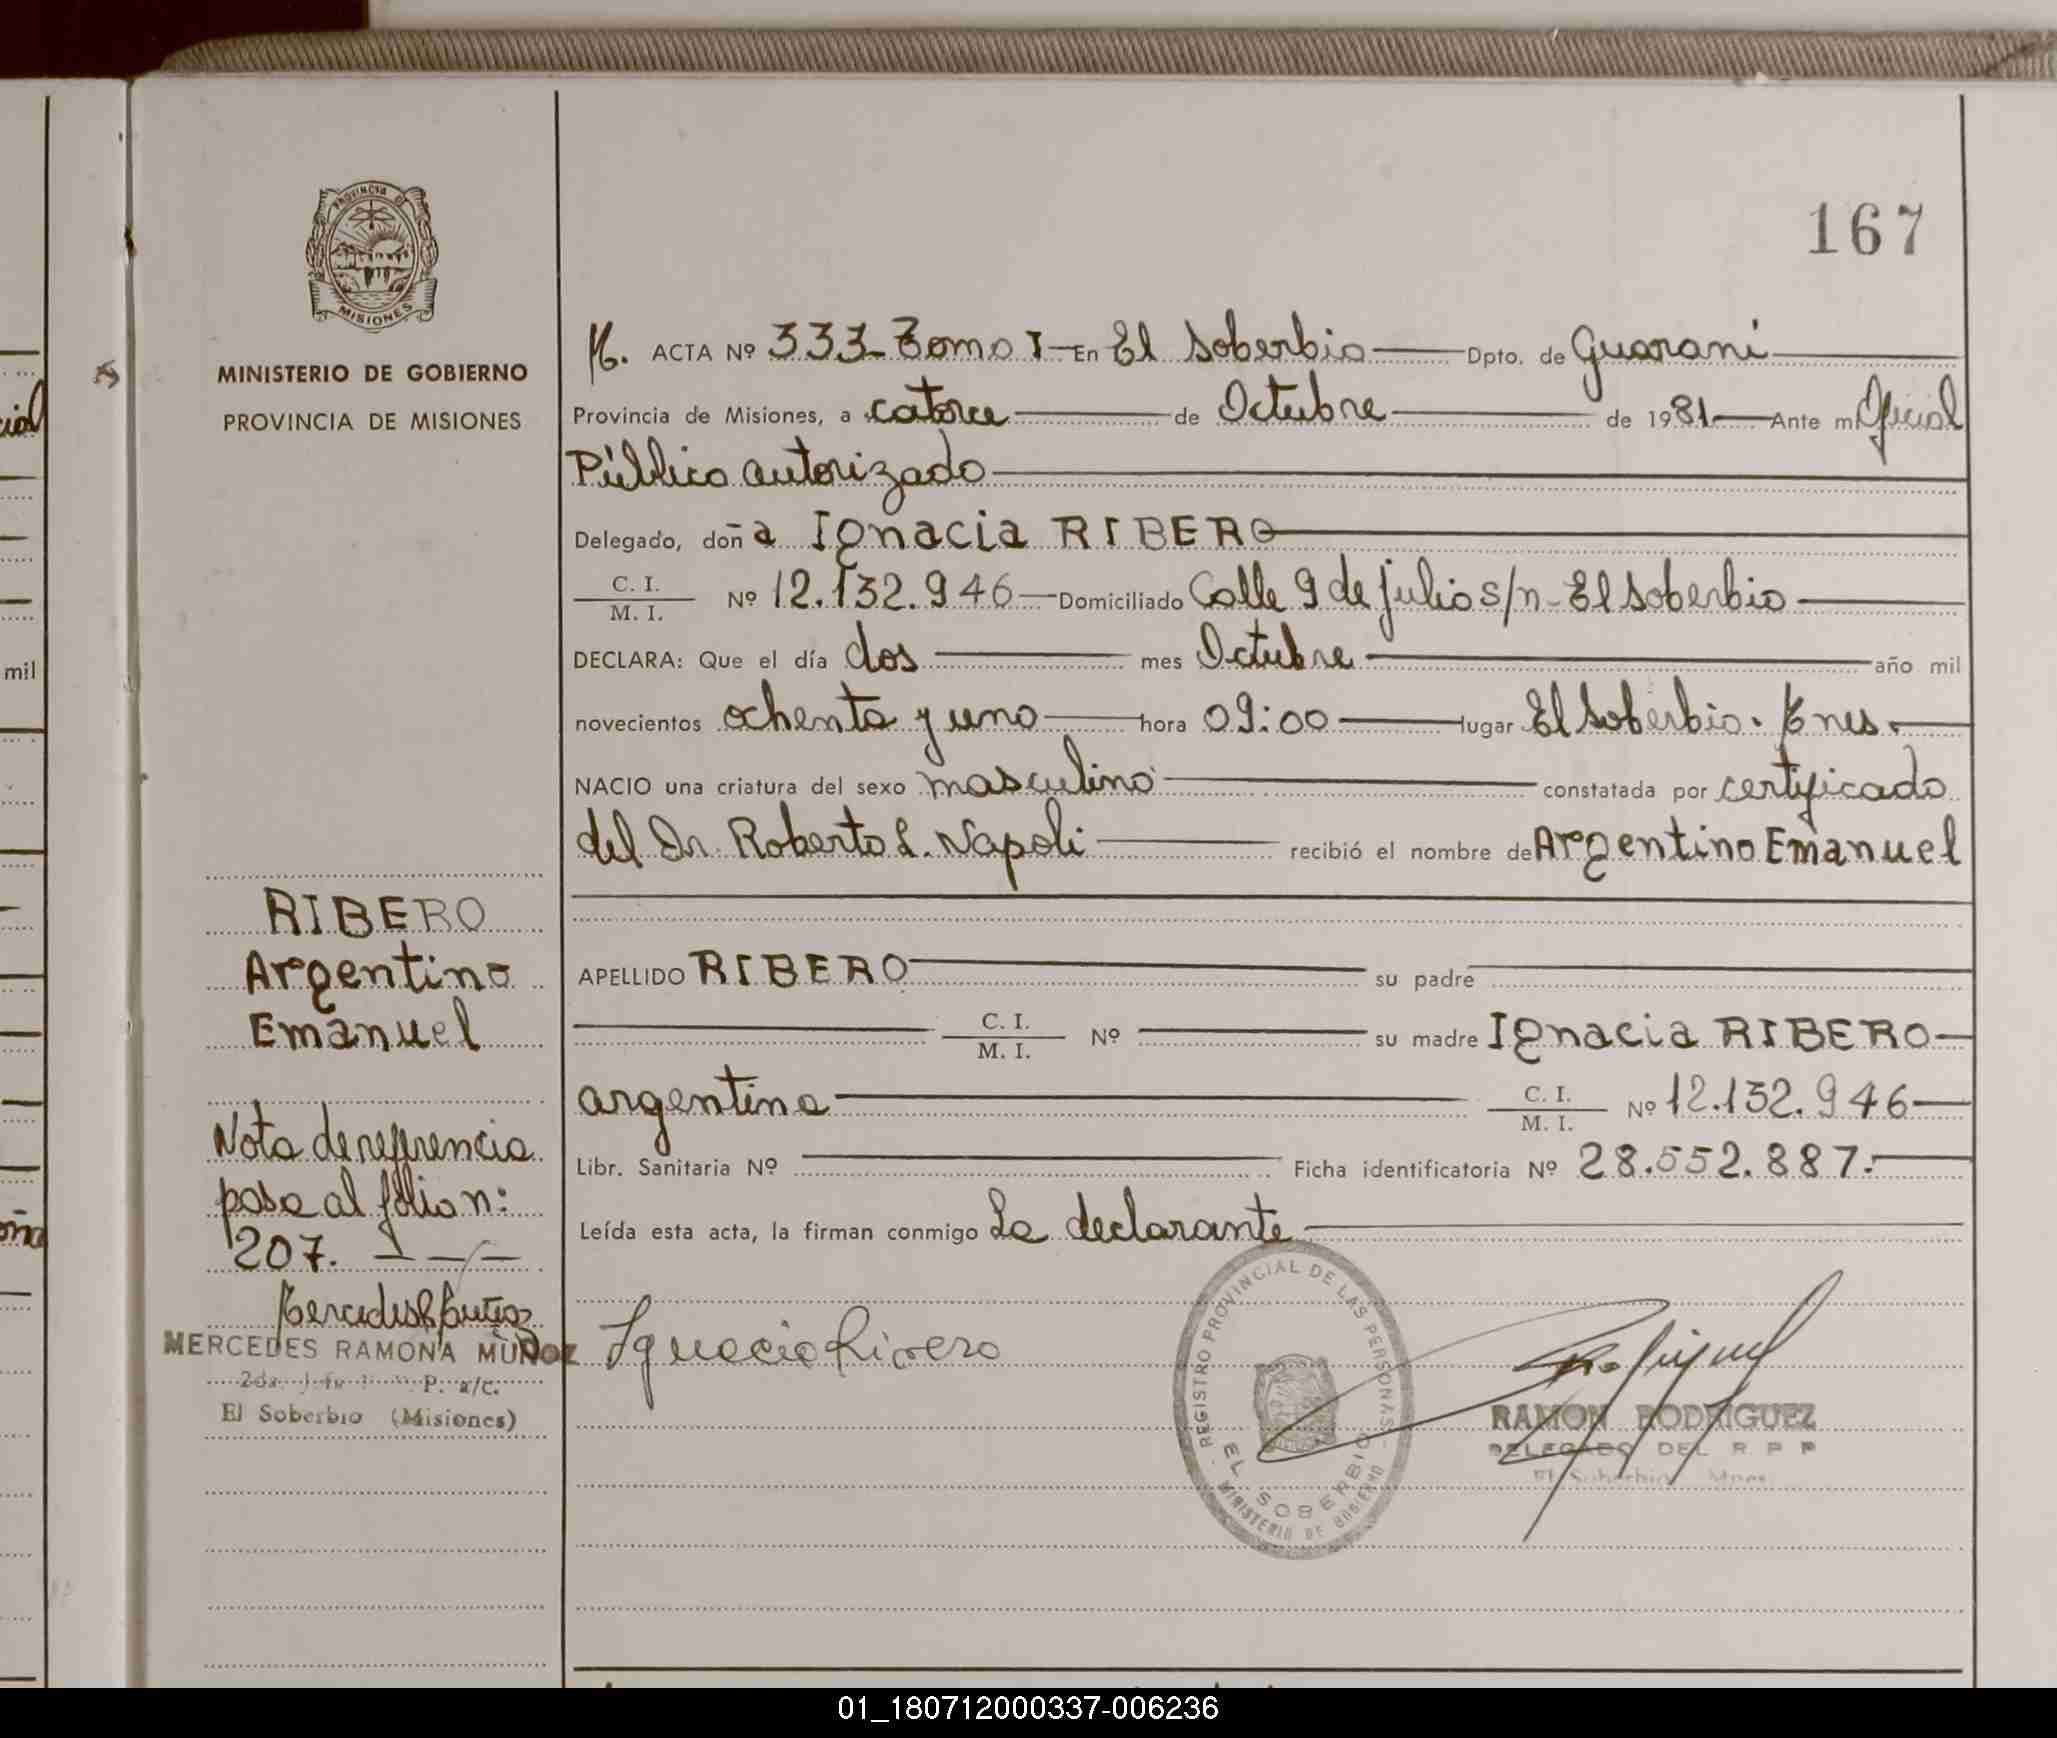 167
PROVINCIA DE
MISIONES
MINISTERIO DE GOBIERNO
PROVINCIA DE MISIONES
ACTA Nº 333_Tomo I En El Soberbio Dpto. de Guaraní
Provincia de Misiones, a catorce de Octubre de 1981 Ante mi Oficial
Público autorizado
Delegado, doña Ignacia RIBERO
C. I. / M. I. Nº 12.132.946 Domiciliado Calle 9 de julio s/n - El Soberbio
DECLARA: Que el día dos mes Octubre año mil
novecientos ochenta y uno hora 09:00 lugar El Soberbio.
NACIO una criatura del sexo masculino constatada por certificado
del Dr. Roberto L. Napoli recibió el nombre de Argentino Emanuel
APELLIDO RIBERO su padre
C. I. / M. I. Nº su madre Ignacia RIBERO
argentina C. I. / M. I. Nº 12.132.946
Libr. Sanitaria Nº Ficha identificatoria Nº 28.552.887.
Leída esta acta, la firman conmigo La declarante
RIBERO
Argentino
Emanuel
Nota de referencia
pasa al folio n:
207.
MERCEDES RAMONA MUÑOZ
P. a/c.
El Soberbio (Misiones)
Ignacia Rivero
REGISTRO PROVINCIAL DE LAS PERSONAS
EL SOBERBIO
MINISTERIO DE GOBIERNO
RAMON RODRIGUEZ
DELEGADO DEL R P P
El Soberbio Mnes.
mil
01_180712000337-006236